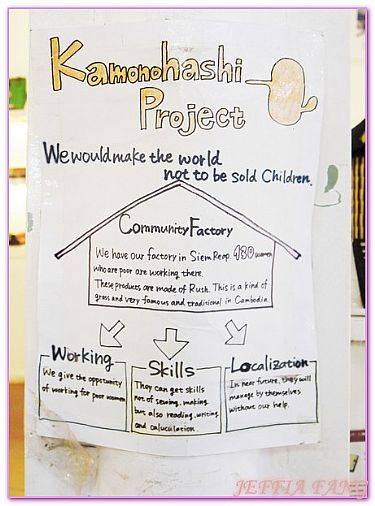 Kamonohashi
Project
We would make the world
not to be sold Children.
Community Factory
We have our factory in Siem Reap. 480 women
who are poor are working there.
These products are made of Rush. This is a kind of
grass and very famous and traditional in Cambodia
Working
We give the oppotunity
of working for poor women
Skills
They can get skills
not of sewing, making
but also reading, writing
and caluculation.
Localization
In near future, they will
manage by themselves
without our help.
JEFFIA FANG